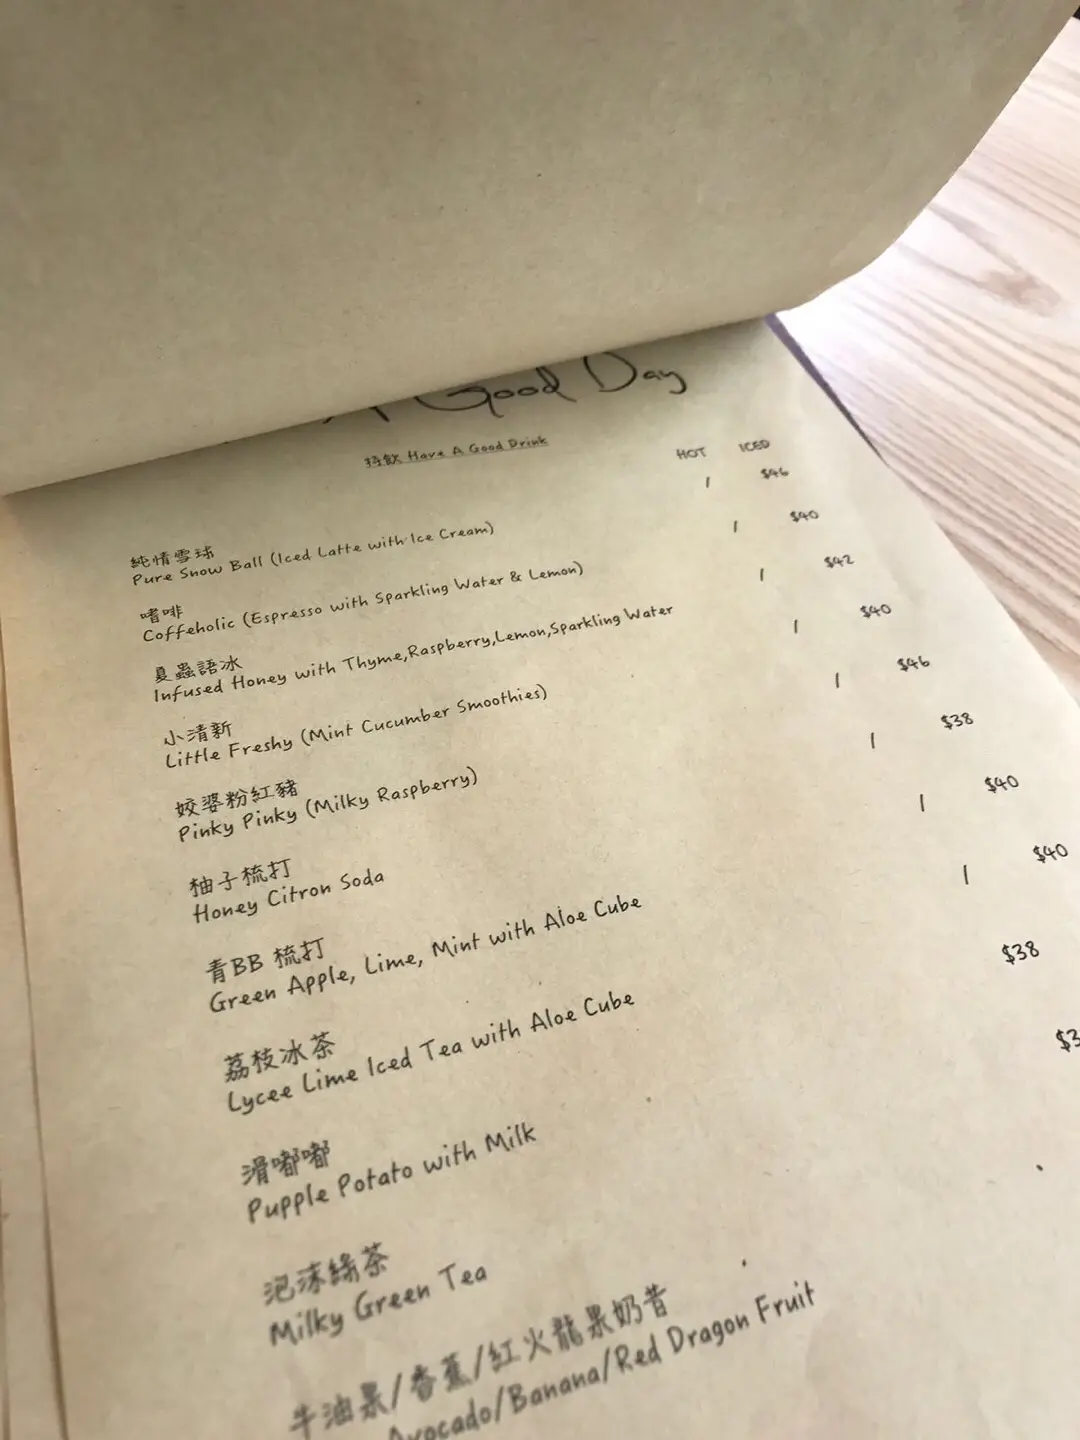 A Good Day
持飲 Have A Good Drink
HOT ICED
純情雪球 / $46
Pure Snow Ball (Iced Latte with Ice Cream)
嗜啡 / $40
Coffeholic (Espresso with Sparkling Water & Lemon)
夏蟲語冰 / $42
Infused Honey with Thyme,Raspberry,Lemon,Sparkling Water
小清新 / $40
Little Freshy (Mint Cucumber Smoothies)
姣婆粉紅豬 / $46
Pinky Pinky (Milky Raspberry)
柚子梳打 / $38
Honey Citron Soda
青BB 梳打 / $40
Green Apple, Lime, Mint with Aloe Cube
荔枝冰茶 / $40
Lycee Lime Iced Tea with Aloe Cube
滑嘟嘟 $38
Pupple Potato with Milk
泡沫綠茶
Milky Green Tea
牛油果/香蕉/紅火龍果奶昔
Avocado/Banana/Red Dragon Fruit